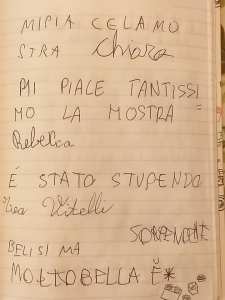 MIPIA CELAMO
STRA Chiara
MI PIALE TANTISSI
MO LA MOSTRA
Rebecca
É STATO STUPENDO
Lea Vitelli
SORPENDETE
BELISIMA
MOLTOBELLA É*